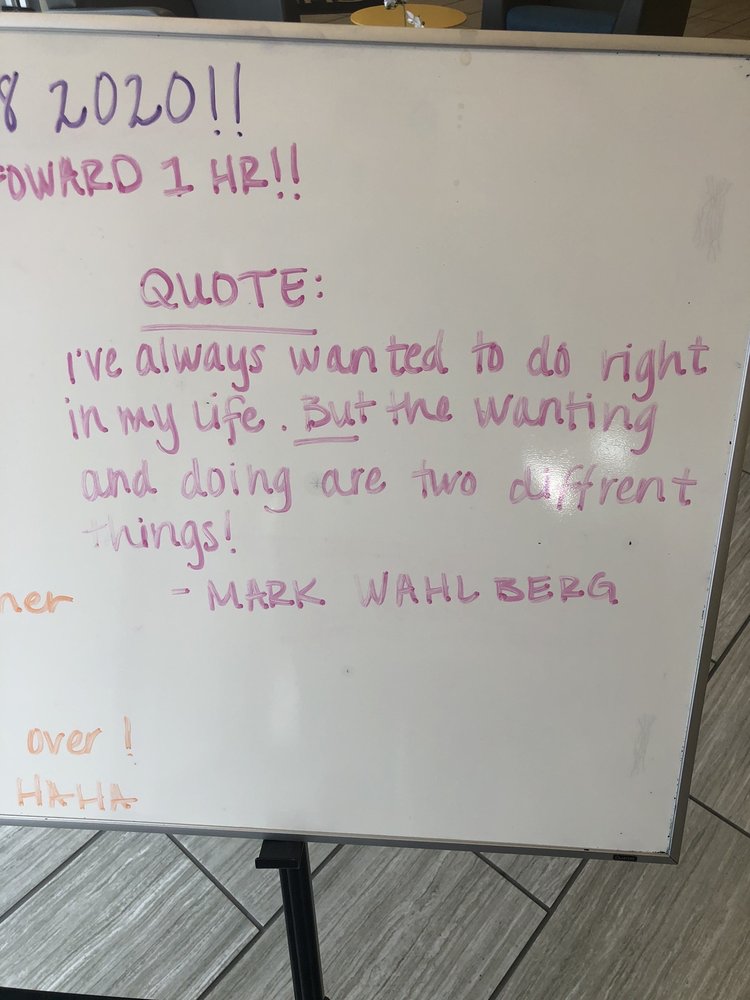 8 2020!!
FOWARD 1 HR!!
QUOTE:
I've always wanted to do right
in my life. But the wanting
and doing are two diffrent
things!
ner
- MARK WAHLBERG
over!
HAHA